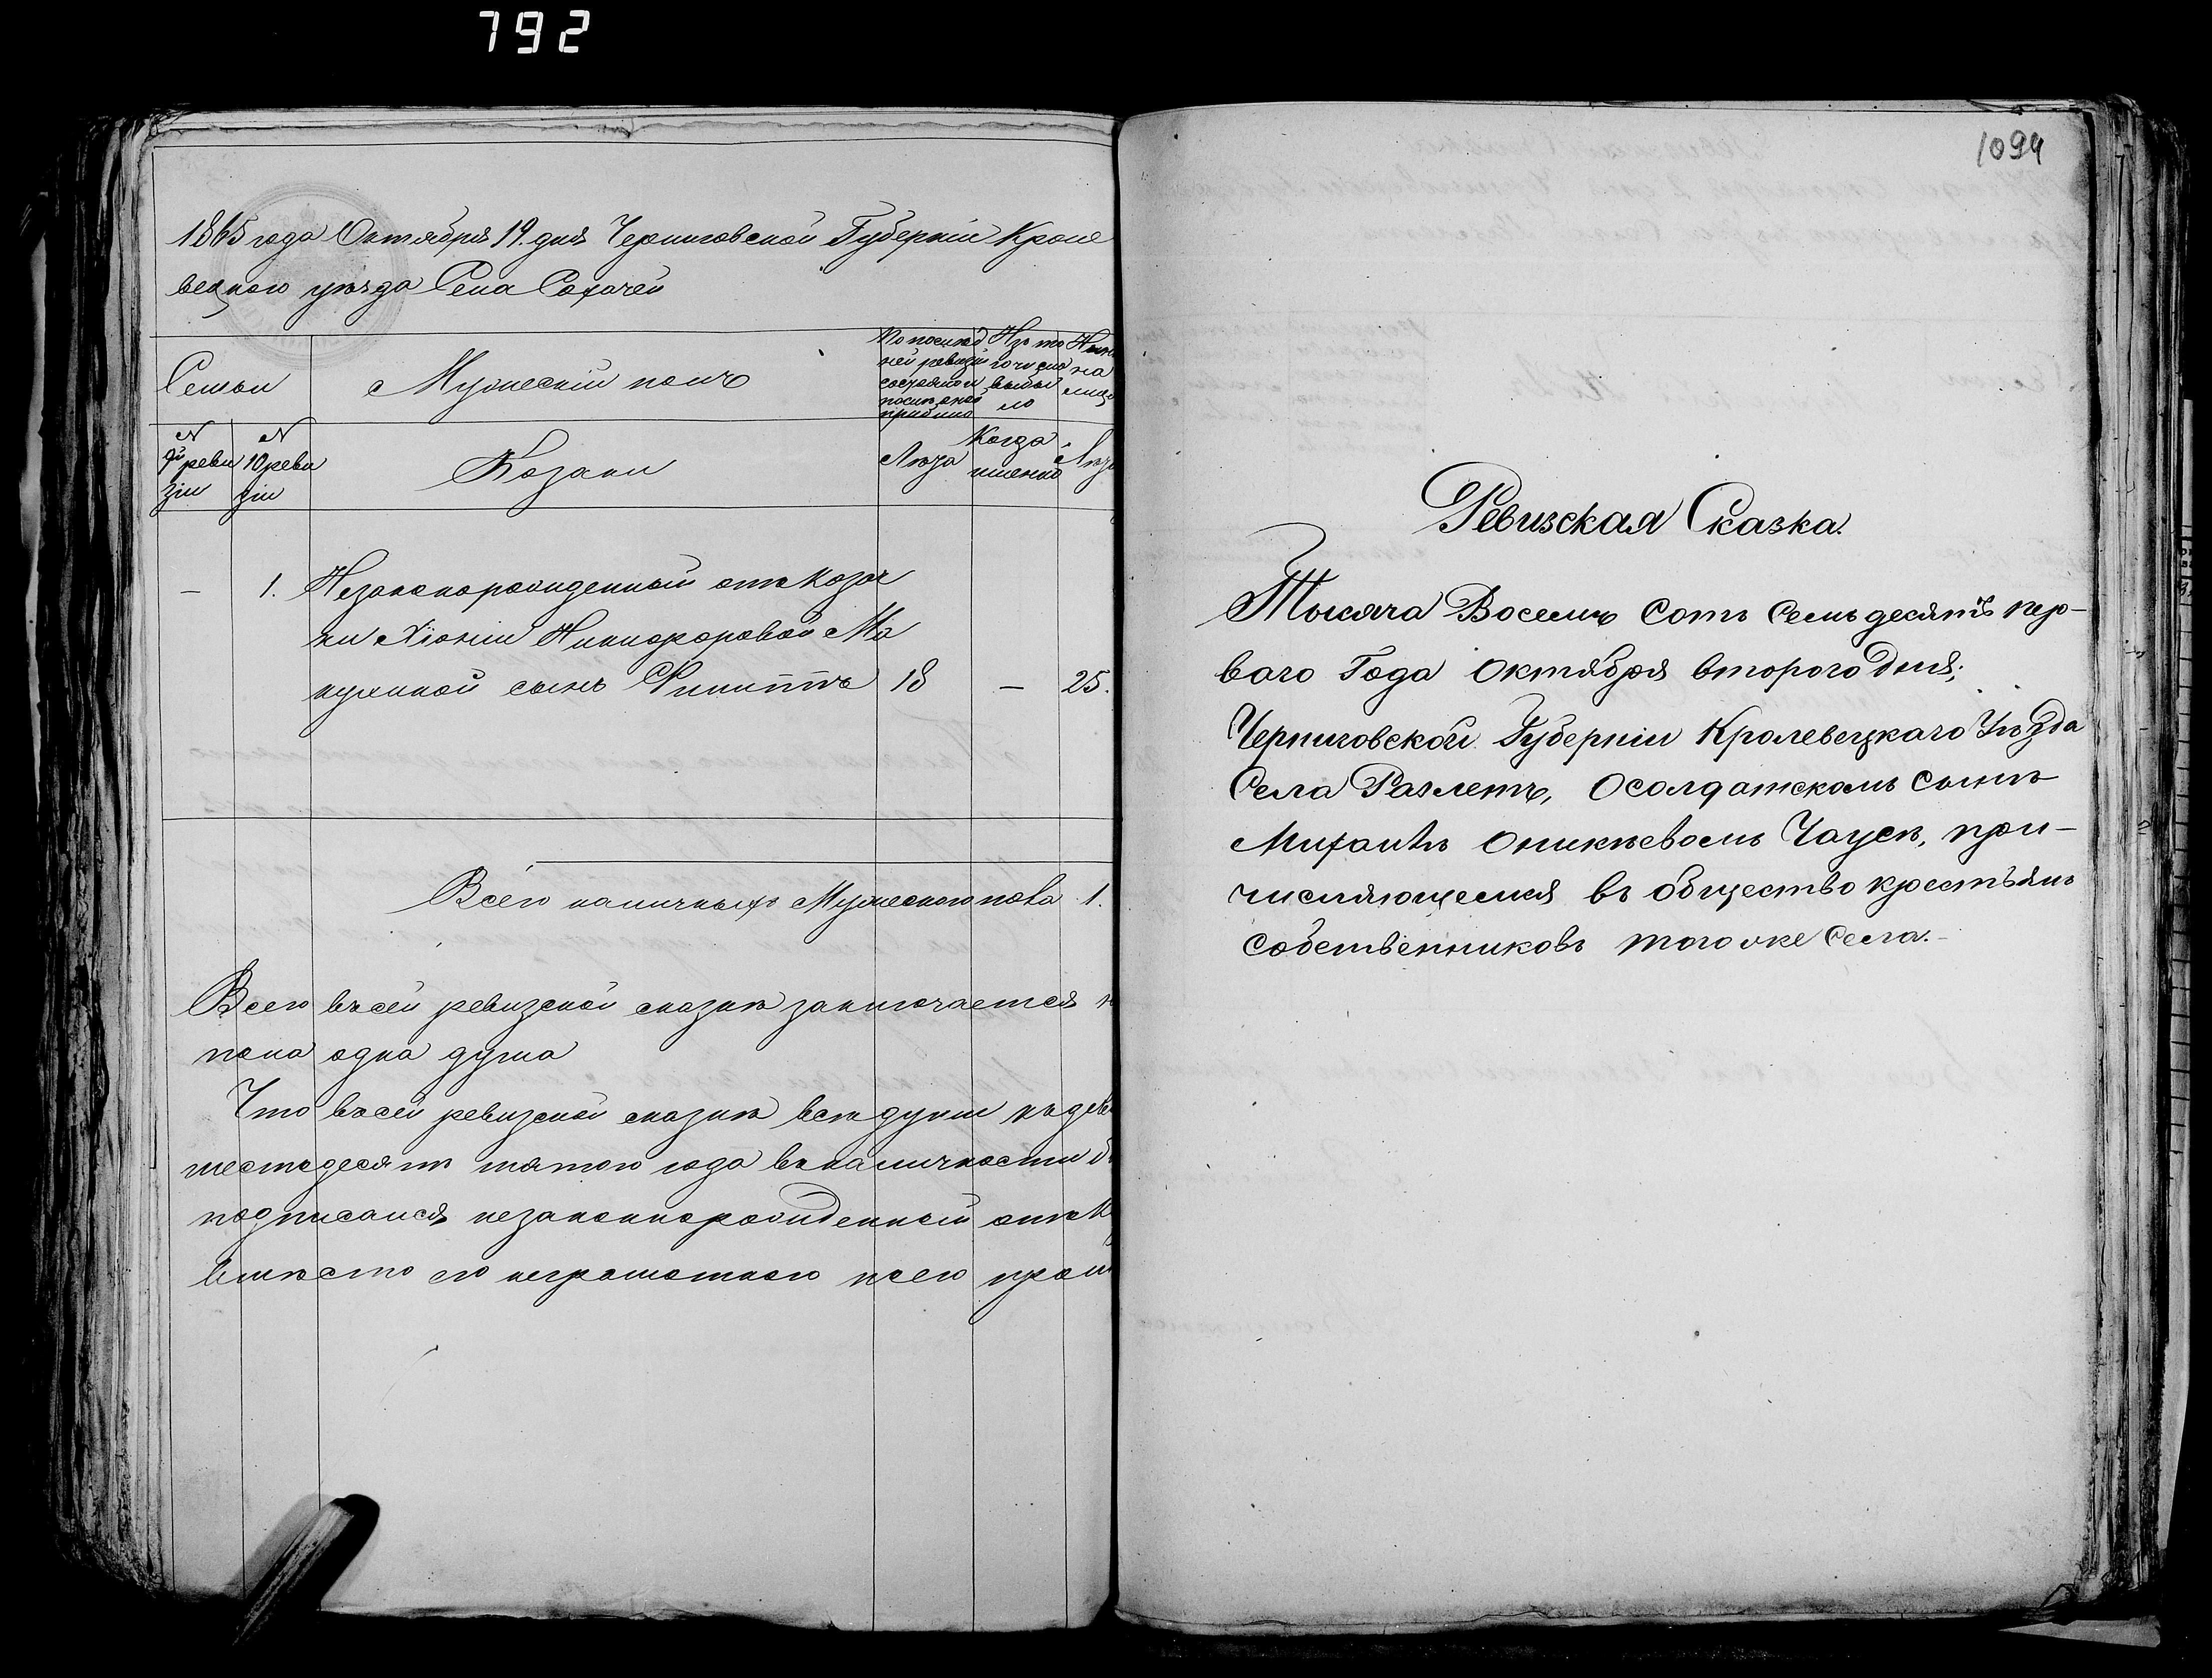 792
1865 года Октября 19. дня Черниговской Губерніи Кроле
вецкаго уѣзда Села Сохачей
Семьи
Мужескій полъ
По послѣд
ней ревизіи
состояло и
послѣ оной
прибыло
Изъ то
го числа
выбы
ло
Нын
на
лицо
N
9й реви
зіи
N
10 реви
зіи
Козаки
Лѣта
Когда
именно
Лѣт
— 1. Незаконорожденный отъ козач
ки Хіоніи Никифоровой Ма
кухиной сынъ Филиппъ 18 — 25.
Всего наличныхъ Мужескаго пола 1.
Всего въ сей ревизской сказкѣ заключается
пола одна душа
Что въ сей ревизской сказкѣ всѣ души
шестьдесятъ пятого года въ наличности
подписался незаконнорожденный отъ К
вмѣсто его неграмотнаго по его
1094
Ревизская Сказка.
Тысяча Восемь Сотъ Семьдесятъ пер-
ваго Года Октября втораго дня;
Черниговской Губерніи Кролевецкаго Уѣзда
Села Разлетъ, О солдатскомъ сынѣ
Михаилѣ Оникѣевомъ Чаусѣ, при-
числяющемся въ общество крестьянъ
собственниковъ того же Села.-